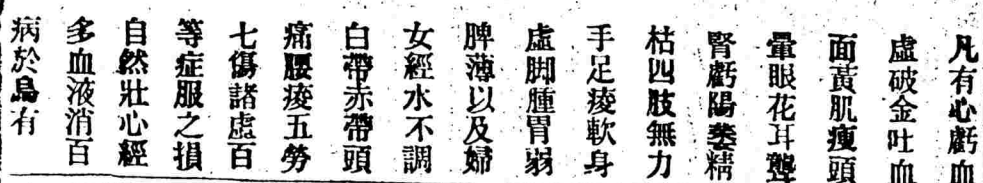 凡有心虧血
虛破金吐血
面黃肌瘦頭
暈眼花耳聾
腎虧陽萎精
枯四肢無力
手足痠軟身
虛脚腫胃弱
脾薄以及婦
女經水不調
白帶赤帶頭
痛腰痠五勞
七傷諸虛百
等症服之損
自然壯心經
多血液消百
病於烏有